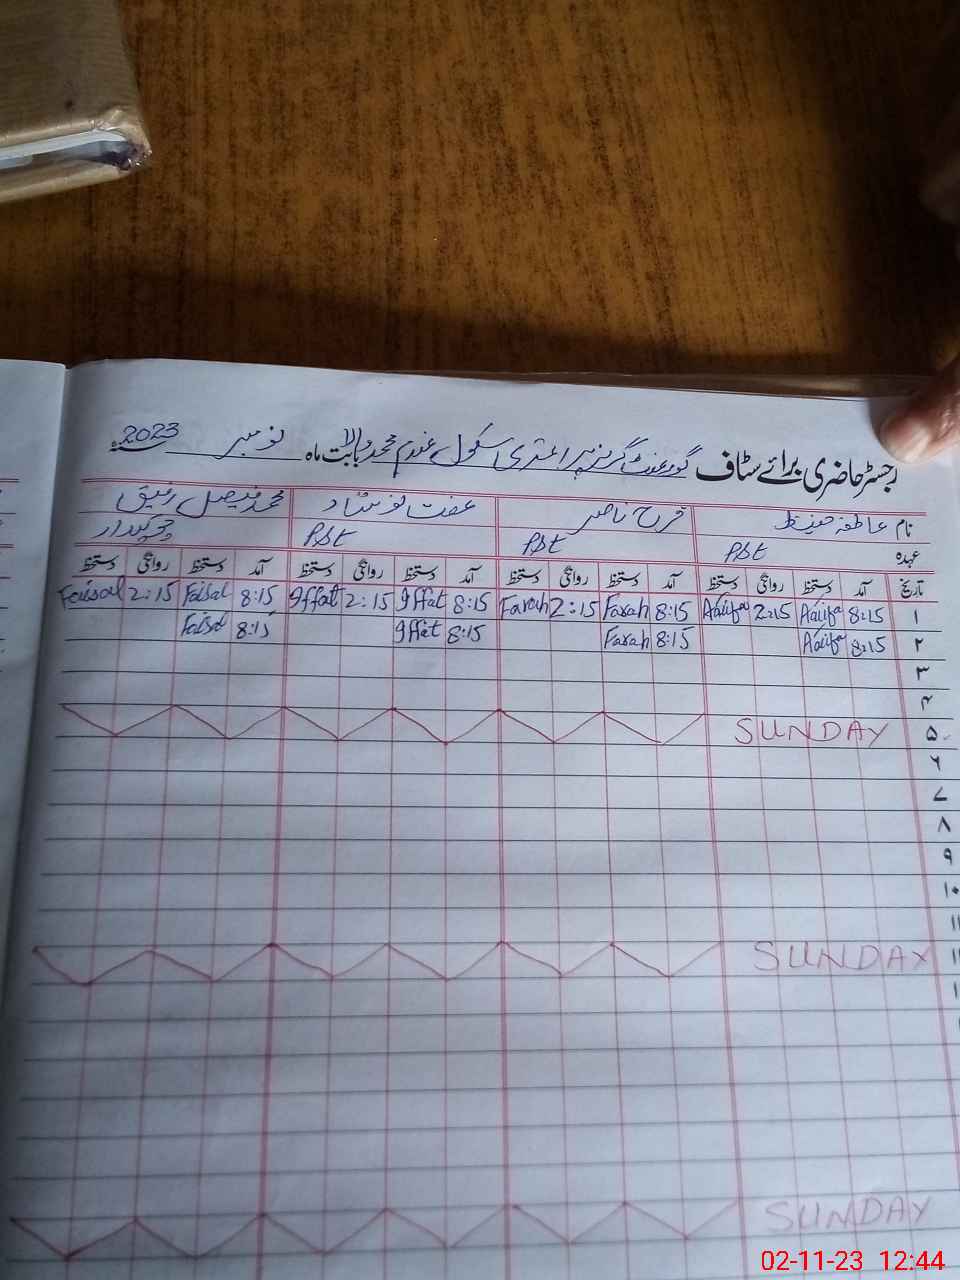 رجسٹر حاضری برائے سٹاف گورنمنٹ گرلز پرائمری سکول بابت ماہ نومبر 2023ء
نام عاطفہ حفیظ فرح ناصر عفت نوشاد محمد فیصل رفیق
عہدہ PST PST PST چوکیدار
تاریخ آمد دستخط روانگی دستخط آمد دستخط روانگی دستخط آمد دستخط روانگی دستخط آمد دستخط روانگی دستخط
۱ 8:15 Aatifa 2:15 Aatifa 8:15 Farah 2:15 Farah 8:15 Iffat 2:15 Iffat 8:15 Faisal 2:15 Faisal
۲ 8:15 Aatifa 8:15 Farah 8:15 Iffat 8:15 Faisal
۳
۴
۵ SUNDAY
۶
۷
۸
۹
۱۰
۱۱
SUNDAY
SUNDAY
02-11-23 12:44